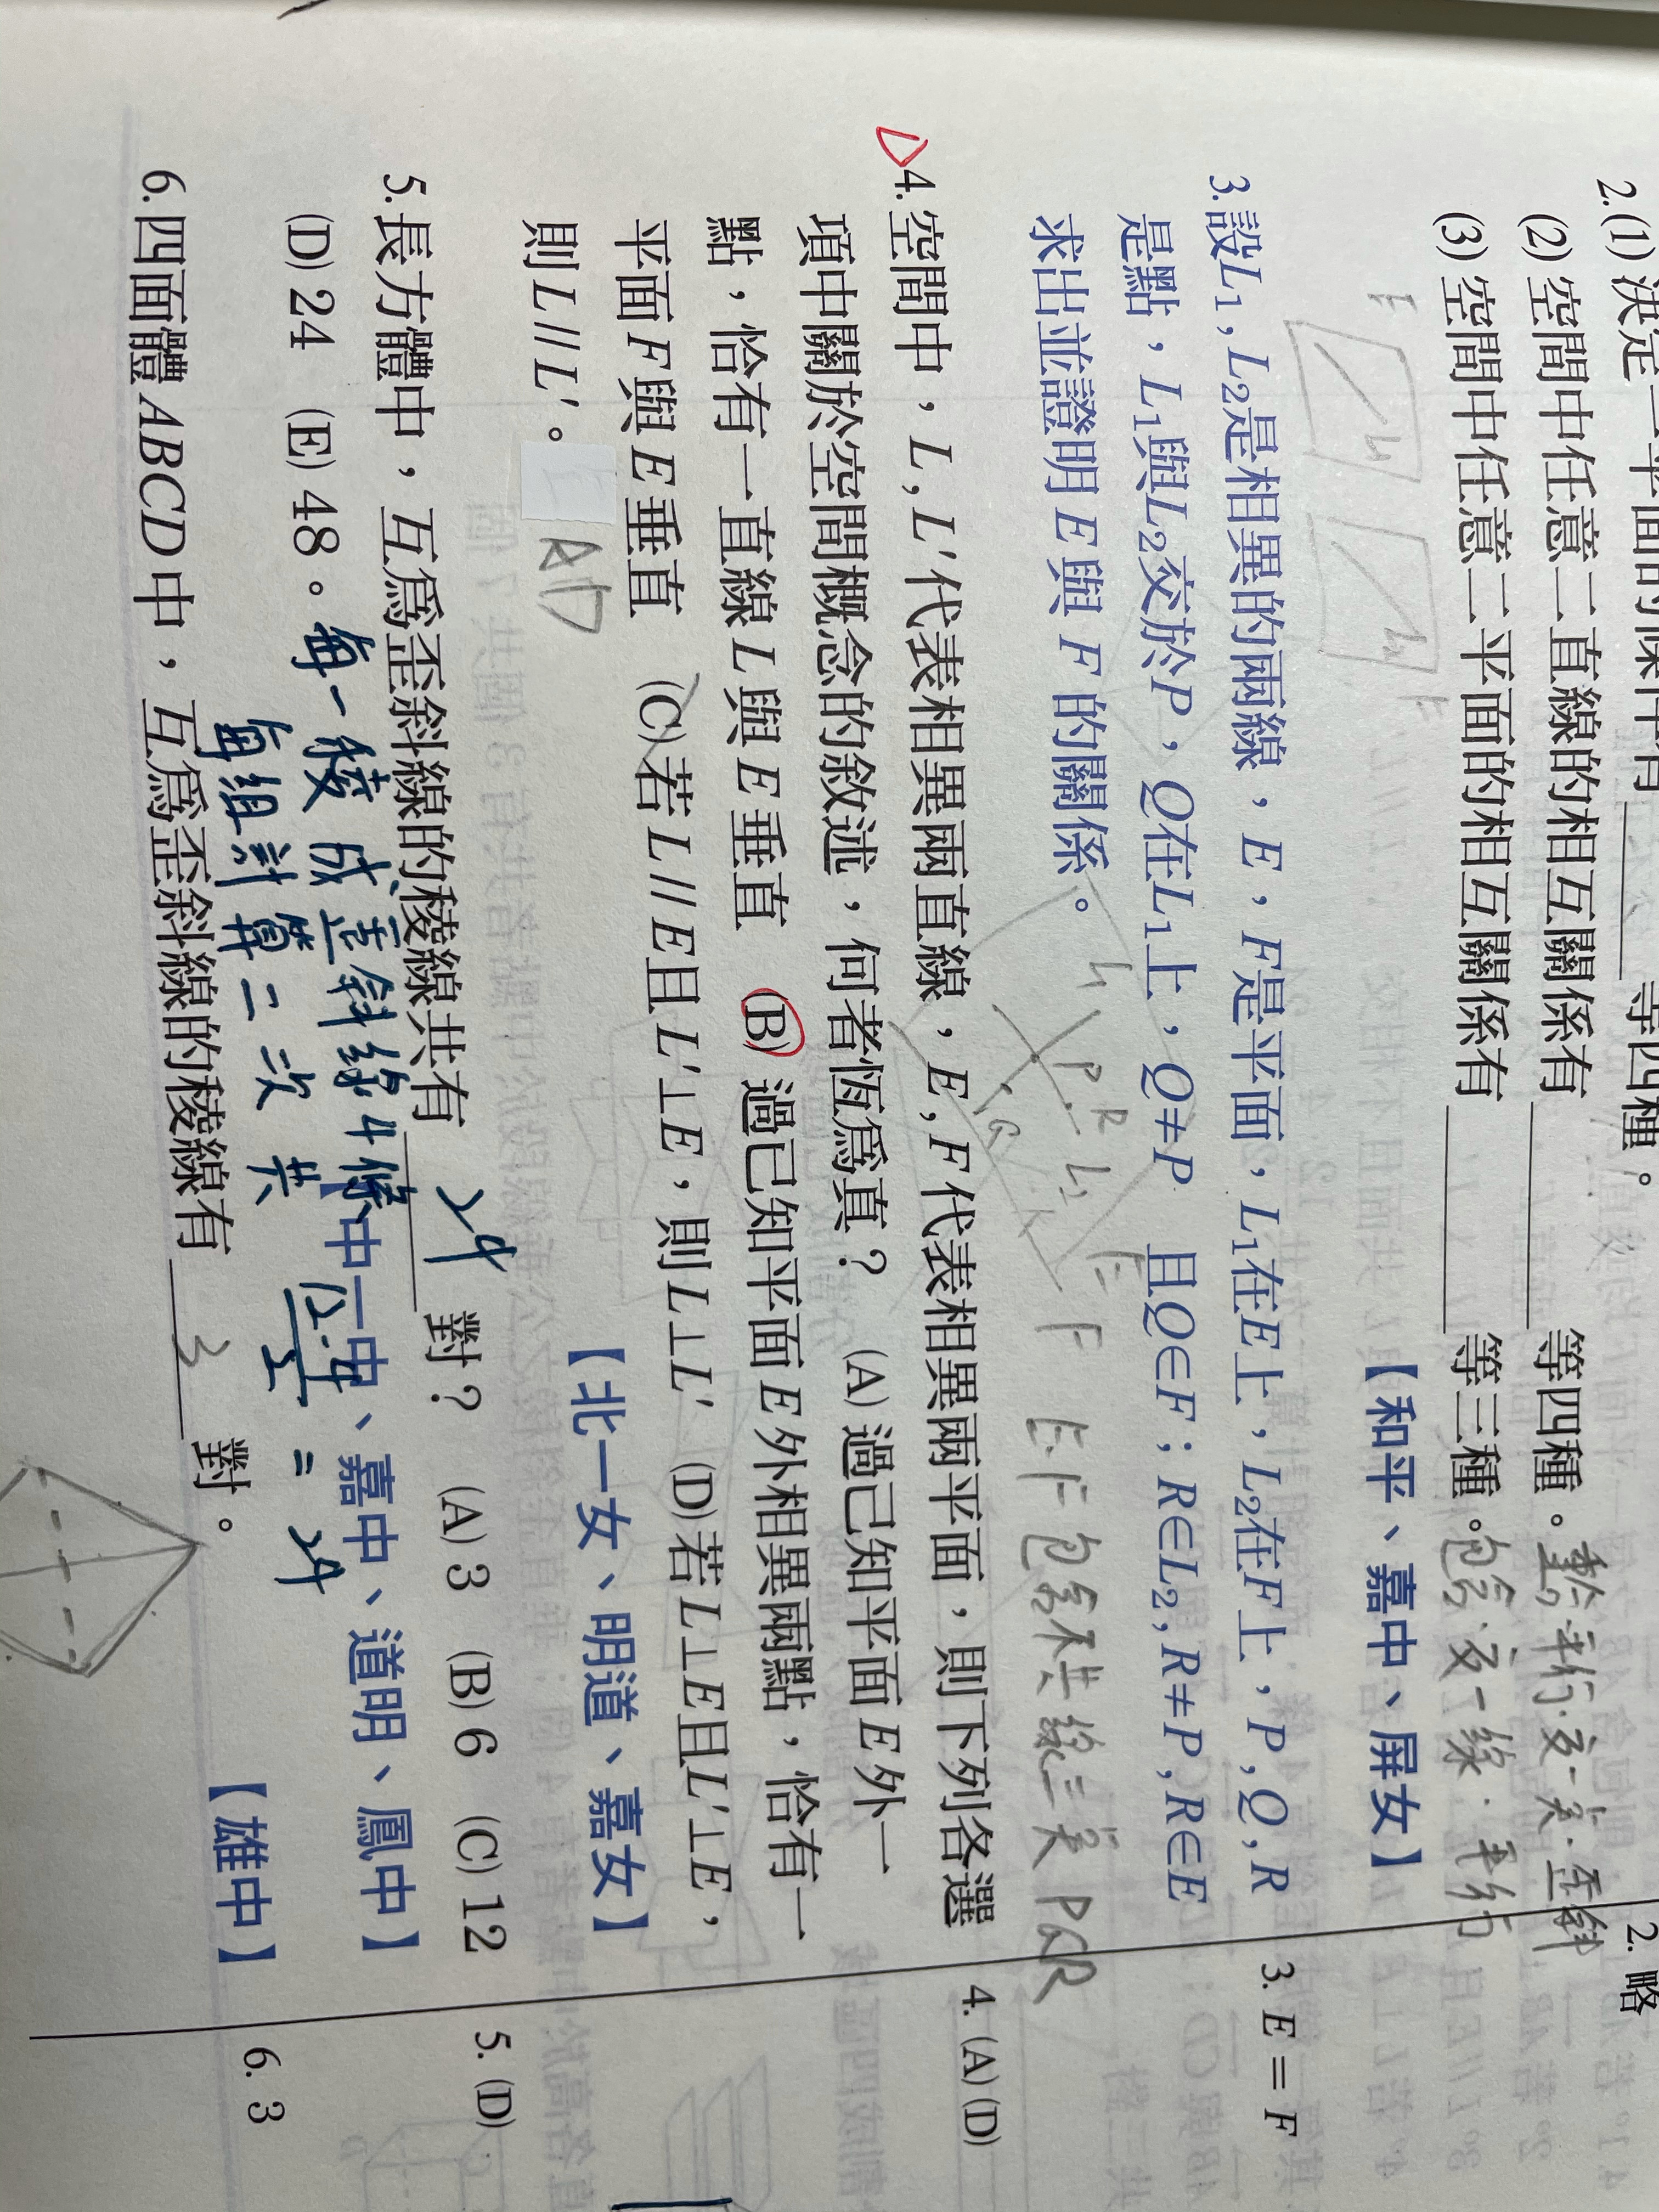 2.(1) 決定一平面的條件有______等四種。
(2) 空間中任意二直線的相互關係有______等四種。重合.平行.交一點.歪斜
(3) 空間中任意二平面的相互關係有______等三種。包含.交一線.平行
【和平、嘉中、屏女】
E L₁ L₂ F
3.設L₁,L₂是相異的兩線,E,F是平面,L₁在E上,L₂在F上,P,Q,R
是點,L₁與L₂交於P,Q在L₁上,Q≠P 且Q∈F;R∈L₂,R≠P,R∈E
求出並證明E與F的關係。
L₁ P R L₂ Q
E.F 包含不共線三點 PQR
4.空間中,L,L′代表相異兩直線,E,F代表相異兩平面,則下列各選
項中關於空間概念的敘述,何者恆為真? (A)過已知平面E外一
點,恰有一直線L與E垂直 (B)過已知平面E外相異兩點,恰有一
平面F與E垂直 (C)若L//E且L′⊥E,則L⊥L′ (D)若L⊥E且L′⊥E,
則L//L′。 AD
【北一女、明道、嘉女】
5.長方體中,互為歪斜線的稜線共有 24 對? (A)3 (B)6 (C)12
(D)24 (E)48。
【中一中、嘉中、道明、鳳中】
每一稜成歪斜線4條
每組計算二次 共 12·4/2 = 24
6.四面體ABCD中,互為歪斜線的稜線有 3 對。
【雄中】
2. 略
3. E = F
4. (A)(D)
5. (D)
6. 3